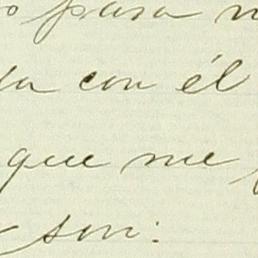 para
con él
que me
son: